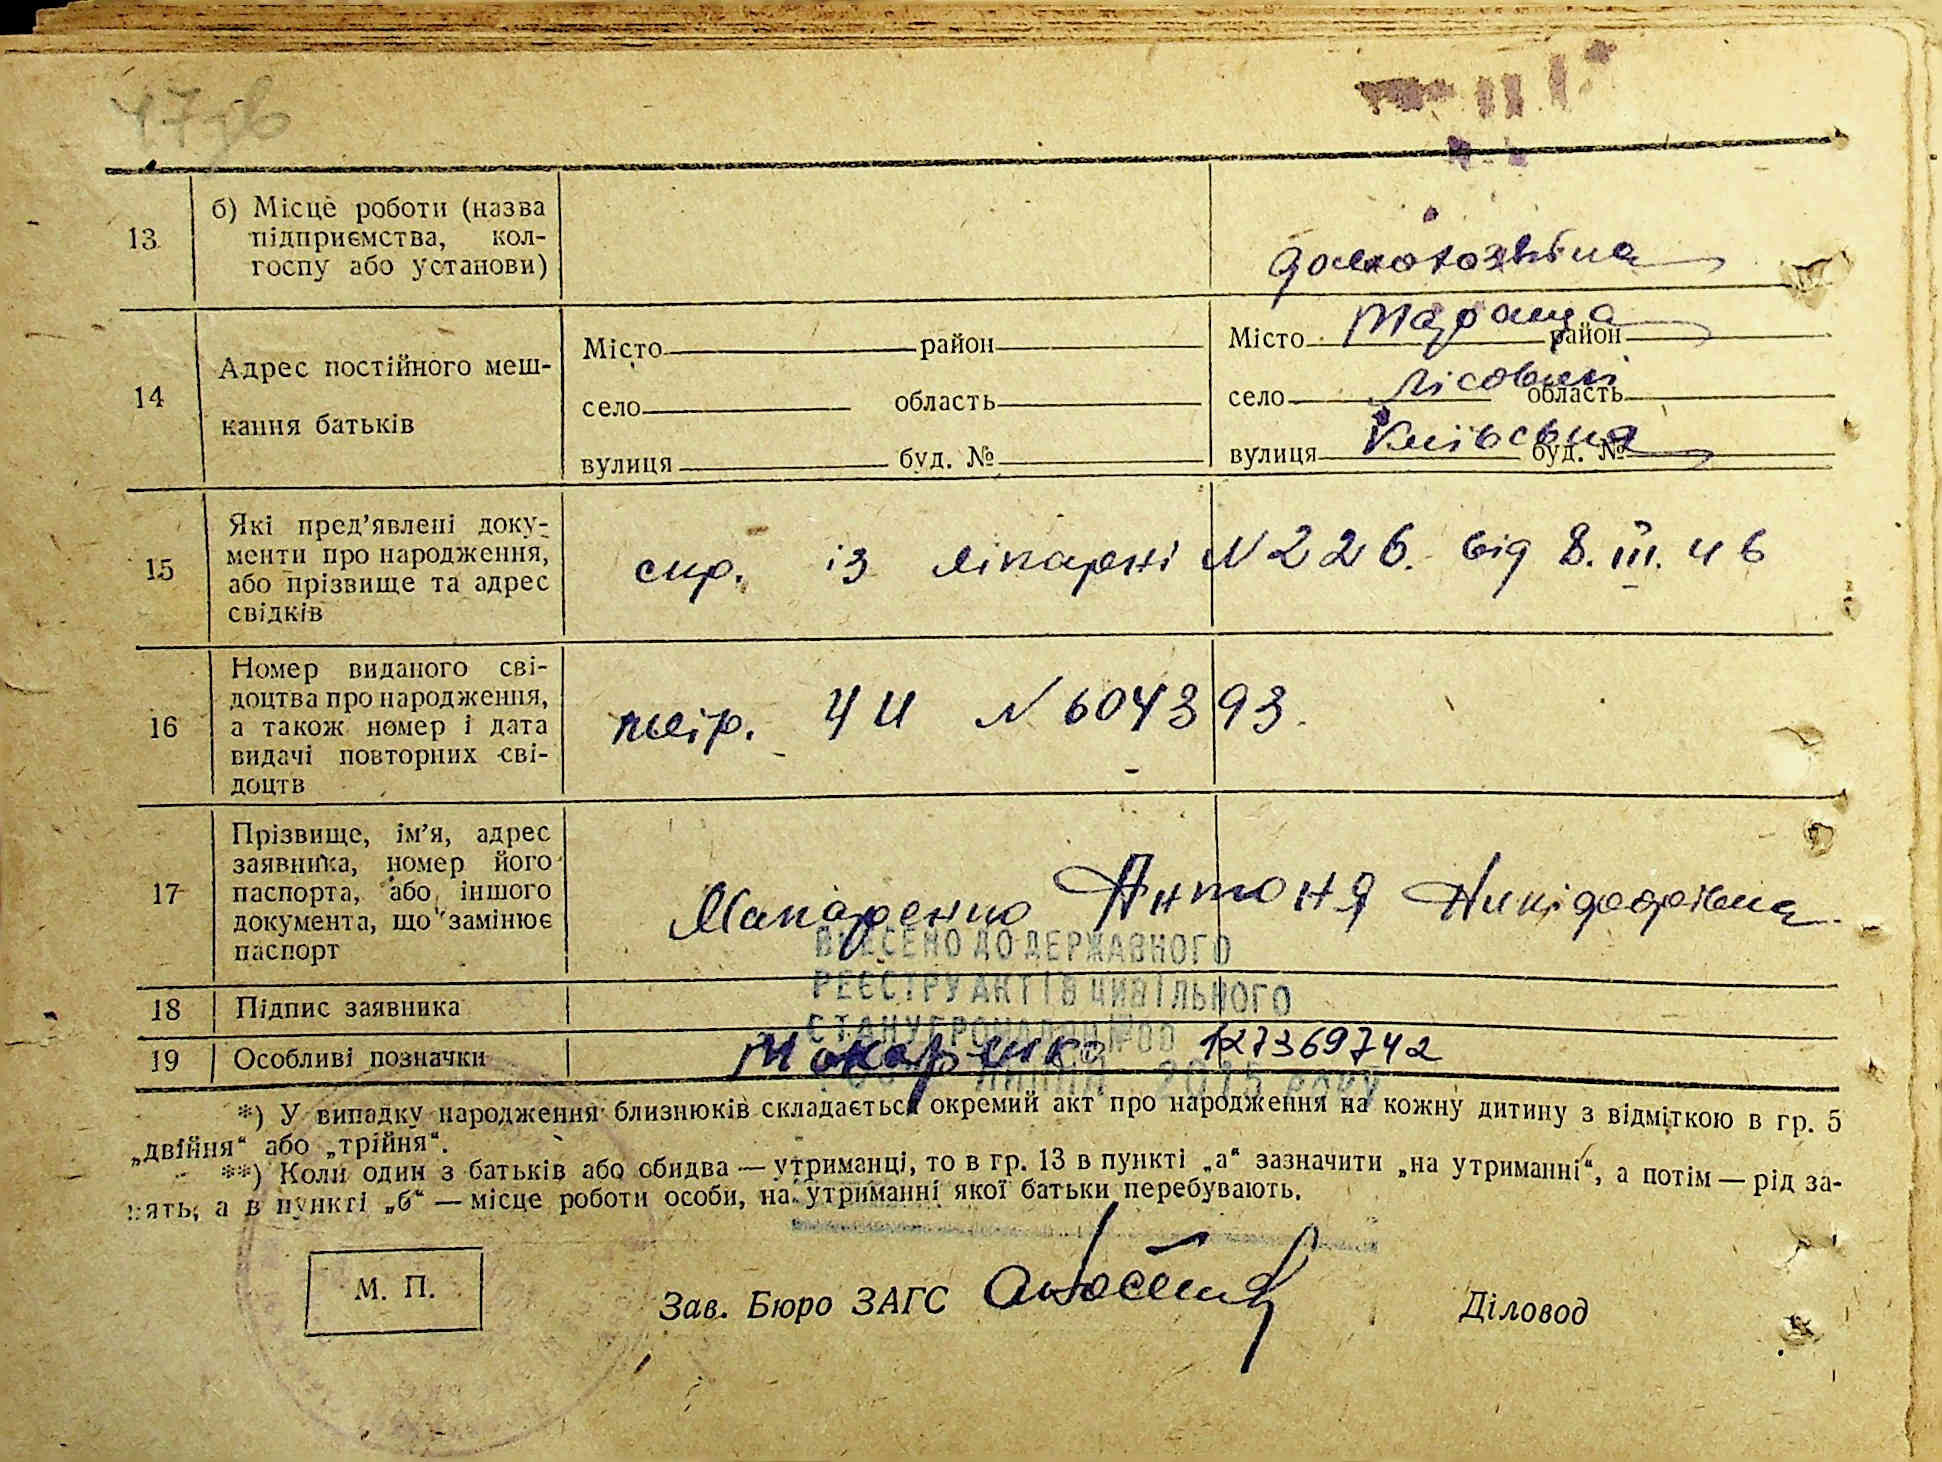 47зв
13
б) Місце роботи (назва
підприємства, кол-
госпу або установи)
домогозяйка
14
Адрес постійного меш-
кання батьків
Місто район
село область
вулиця буд. №
Місто Тараща район
село Лісовичі область
вулиця Київська буд. №
15
Які пред’явлені доку-
менти про народження,
або прізвище та адрес
свідків
спр. із лікарні N 226. від 8.III.46
16
Номер виданого сві-
доцтва про народження,
а також номер і дата
видачі повторних сві-
доцтв
N 604393.
17
Прізвище, ім’я, адрес
заявника, номер його
паспорта, або іншого
документа, що замінює
паспорт
Макаренко Антоня Никіфорівна
ВНЕСЕНО ДО ДЕРЖАВНОГО
РЕЄСТРУ АКТІВ ЦИВІЛЬНОГО
18
Підпис заявника
СТАНУ ГРОМАДЯН №00 127369742
19
Особливі позначки
2015 року
*) У випадку народження близнюків складається окремий акт про народження на кожну дитину з відміткою в гр. 5
„двійня“ або „трійня“.
**) Коли один з батьків або обидва — утриманці, то в гр. 13 в пункті „а“ зазначити „на утриманні“, а потім — рід за-
нять, а в пункті „б“ — місце роботи особи, на утриманні якої батьки перебувають.
М. П.
Зав. Бюро ЗАГС
Діловод